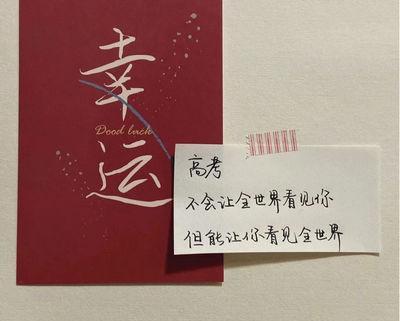 幸
Dood luck
运
高考
不会让全世界看见你
但能让你看见全世界